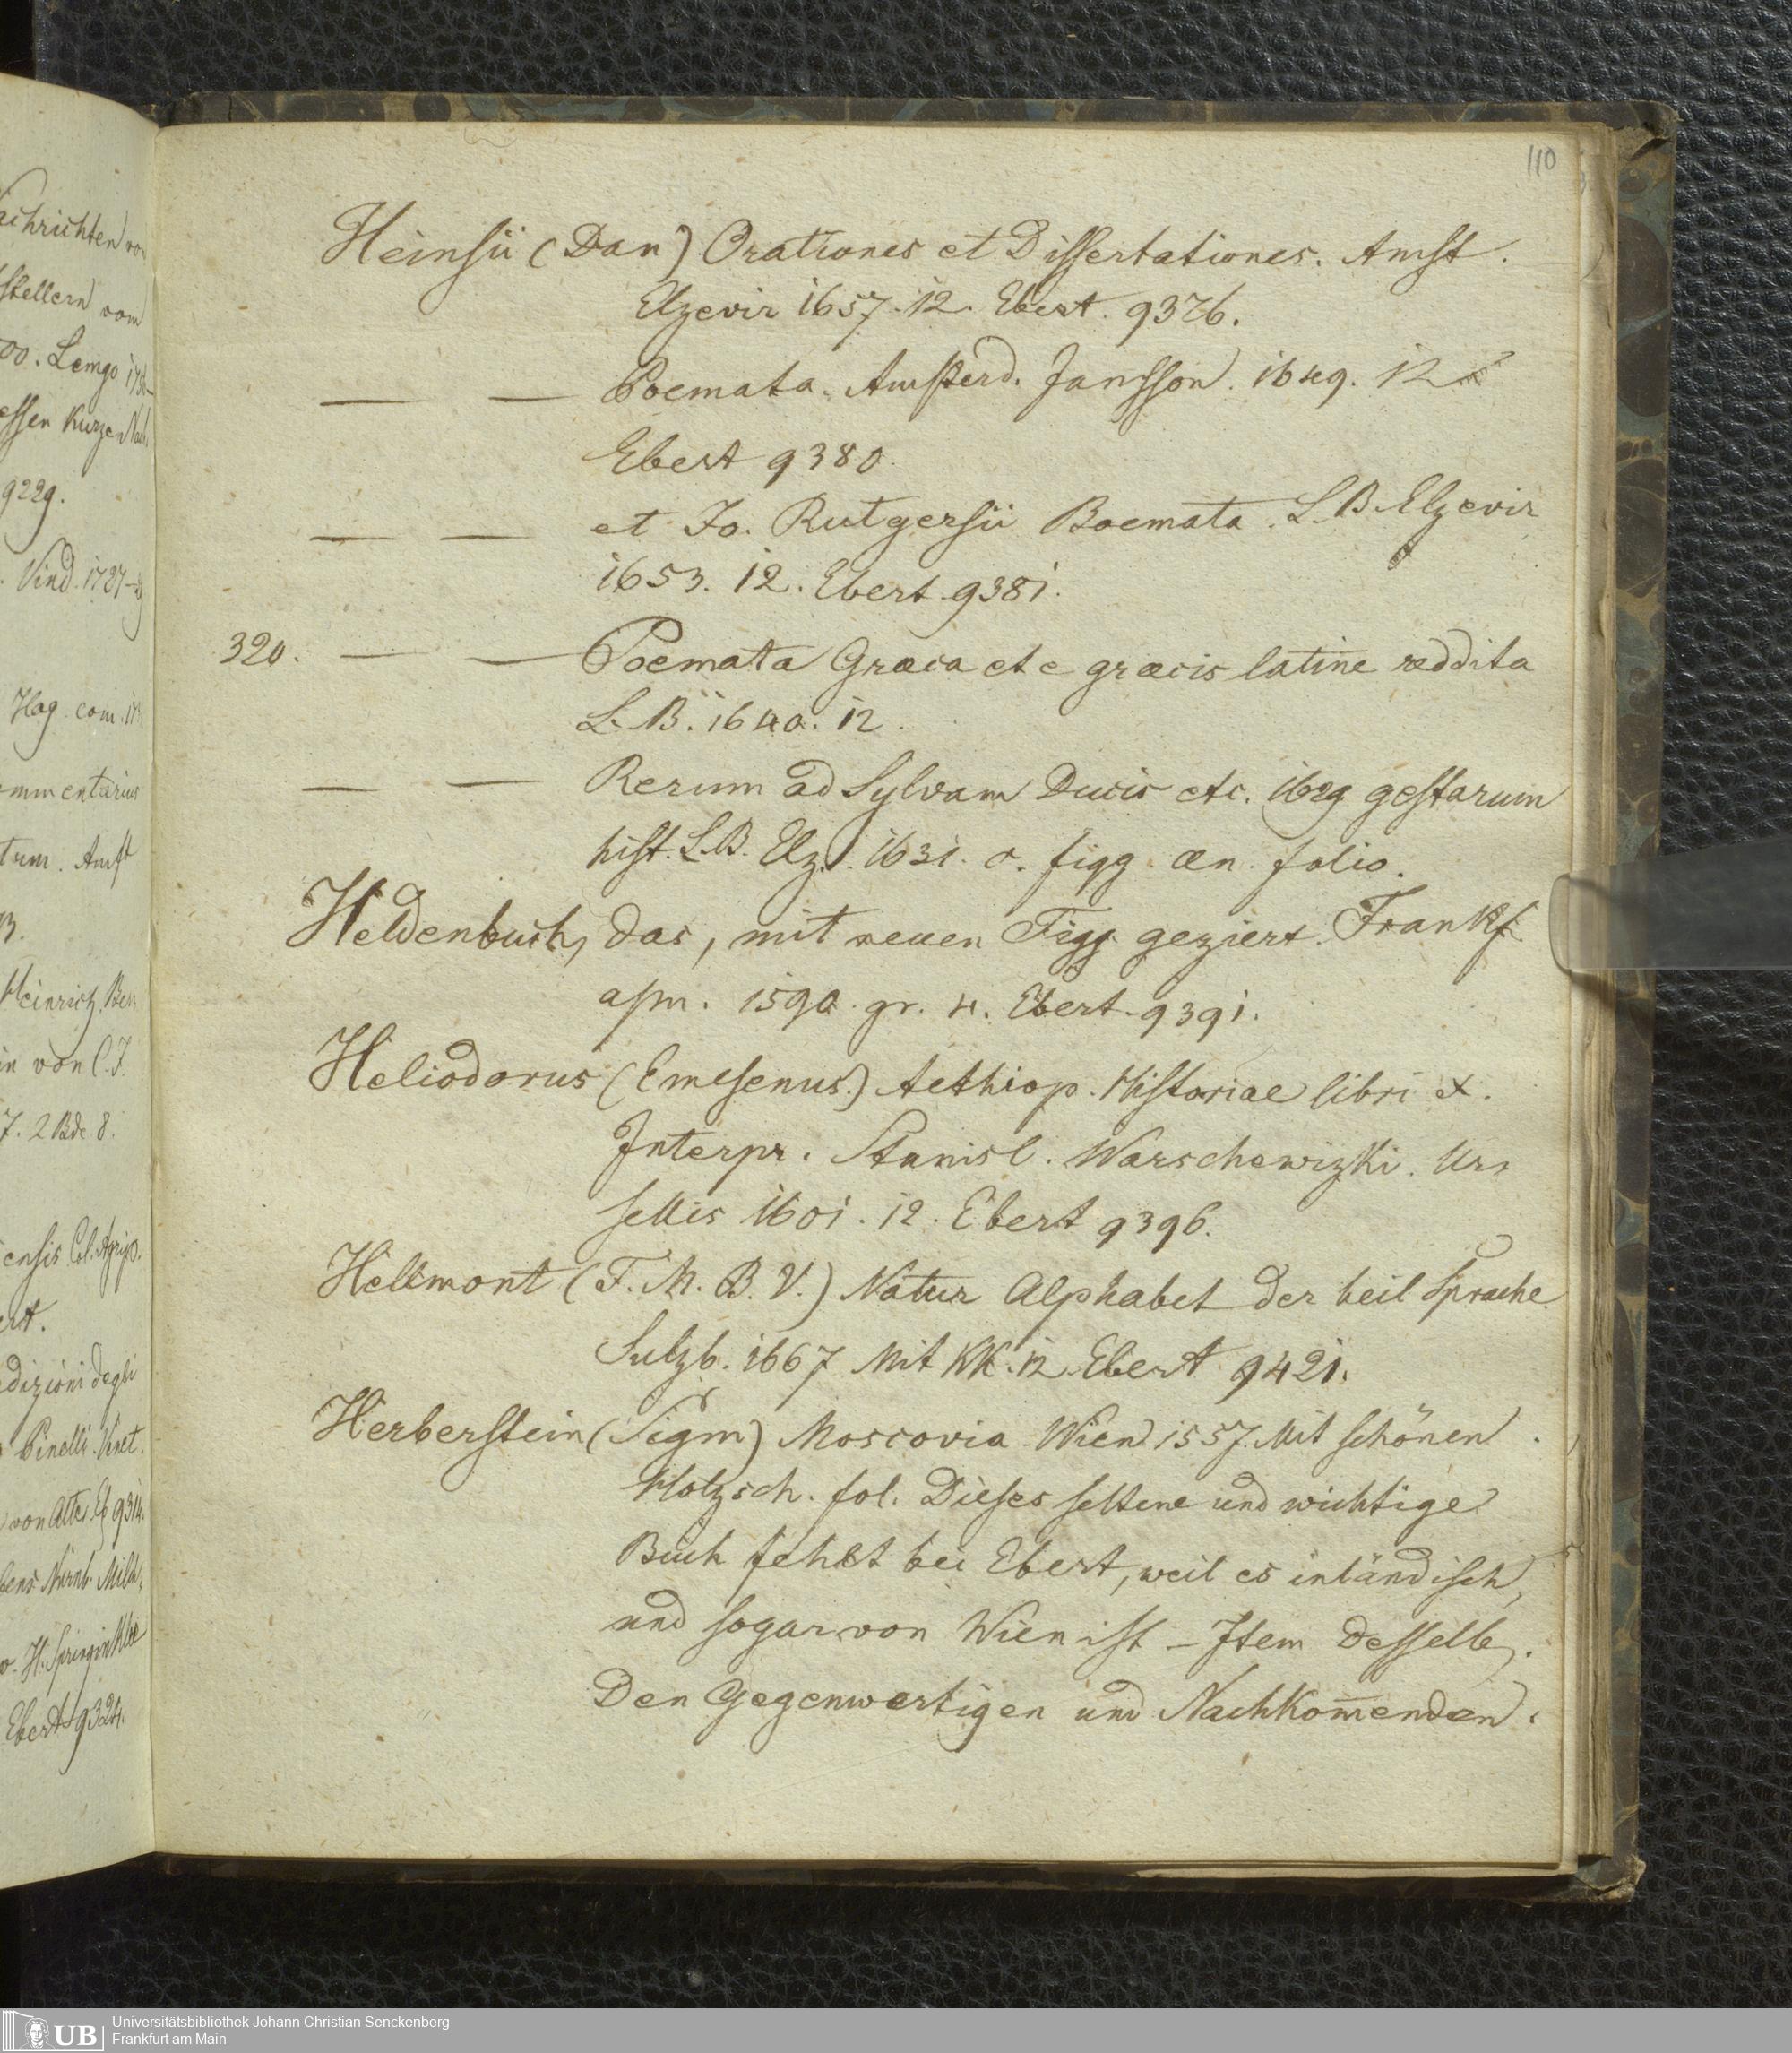 achrichten von
stellern vom
00. Lemgo
essen kurze
9229.
. Vind. 1787–
Hag. com.
mmentarius
tum. Amst
Heinrich
in von C. F.
7. 2 Bde 8.
ensis Col. Agrip.
ert.
edizioni degli
Pinelli. Venet.
von Alter Eb. 9314.
Ebert 9324.
110
Heinsii (Dan) Orationes et Dissertationes. Amst.
Elzevir 1657. 12. Ebert. 9376.
— — Poemata. Amsterd. Jansson. 1649. 12
Ebert 9380.
— — et Jo. Rutgersii Poemata. L. B. Elzevir
1653. 12. Ebert 9381.
320. — — Poemata Graeca et e graecis latine reddita
L. B. 1640. 12.
— — Rerum ad Sylvam Ducis etc. 1629 gestarum
hist. L. B. Elz. 1631. c. figg. aen. folio.
Heldenbuch, das, mit neuen Figg. geziert. Frankf.
a/m. 1590. gr. 4. Ebert 9391.
Heliodorus (Emesenus) Aethiop. Historiae libri X.
Interpr. Stanisl. Warschewizki. Ur-
sellis 1601. 12. Ebert 9396.
Helemont (F. M. B. V.) Natur Alphabet der heil Sprache.
Sulzb. 1667 Mit KK. 12. Ebert 9421.
Herberstein (Sigm) Moscovia Wien 1557. Mit schönen
Holzsch. fol. Dieses seltene und wichtige
Buch fehlt bei Ebert, weil es inländisch,
und sogar von Wien ist – Item Desselb.
Den Gegenwertigen und Nachkom̅enden.
UB
Universitätsbibliothek Johann Christian Senckenberg
Frankfurt am Main